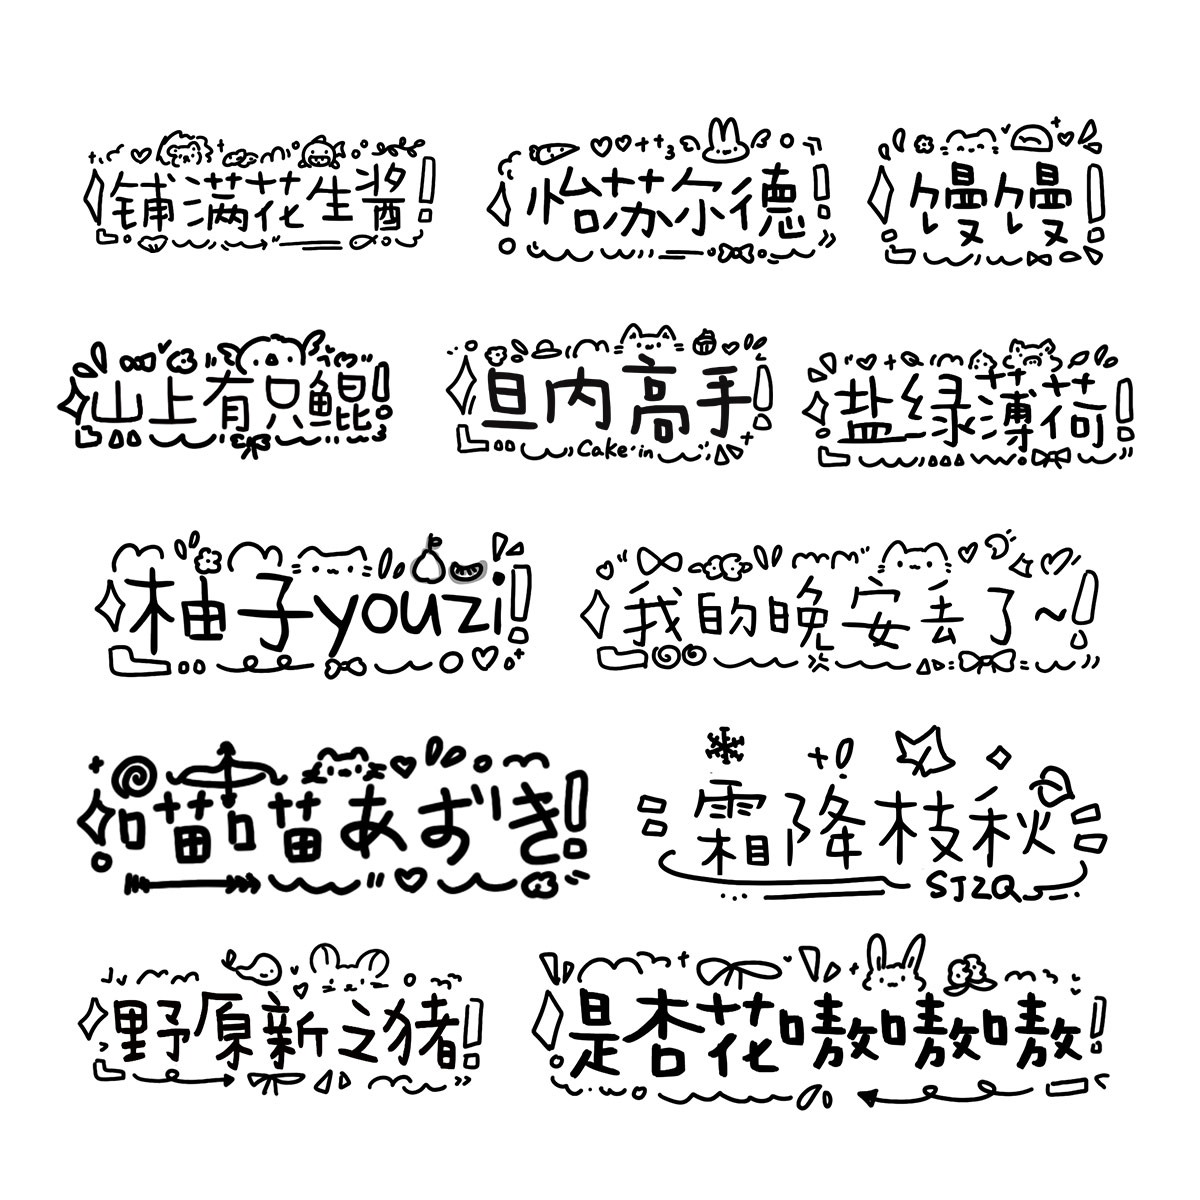 铺满花生酱
怡苏尔德
馒馒
山上有只鲲
旦内高手
Cake in
盐绿薄荷
柚子youzi
我的晚安去了~
喵喵あずき
霜降枝秋
SJZQ
野原新之猪
是杏花嗷嗷嗷